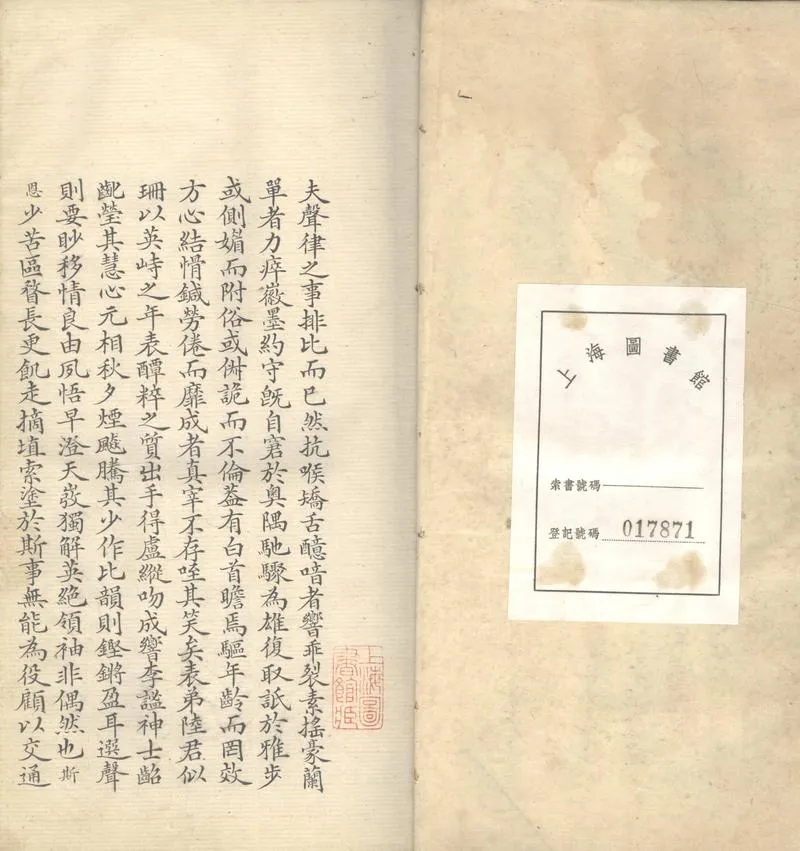 上海圖書館
索書號碼
登記號碼 017871
夫聲律之事排比而已然抗喉矯舌醷喑者響乖裂素搖豪蘭
單者力瘁徽墨約守旣自窘於奧隅馳驟為雄復取詆於雅步
或側媚而附俗或儕詭而不倫葢有白首瞻焉驅年齡而罔效
方心結愲鍼勞倦而靡成者真宰不存咥其笑矣表弟陸君似
珊以英峙之年表醰粹之質出手得盧縱吻成響李謐神士齠
齔瑩其慧心元相秋夕煙飈騰其少作比韻則鏗鏘盈耳選聲
則要眇移情良由夙悟早澄天發獨解英絕領袖非偶然也斯
恩少苦區瞀長更飢走摘埴索塗於斯事無能為役顧以交通
上海圖書館藏